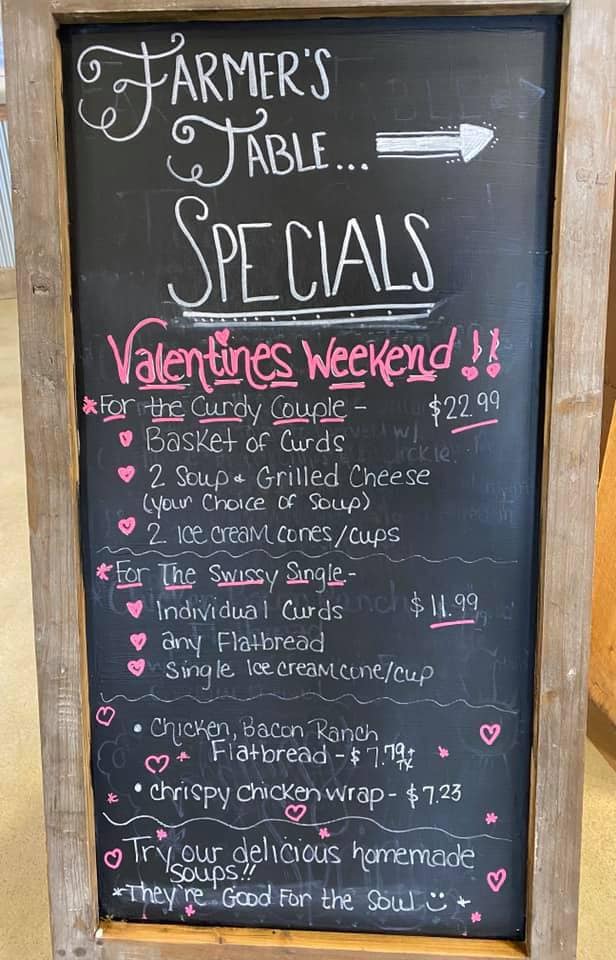 FARMER'S
TABLE...
SPECIALS
Valentines Weekend!!
*For the Curdy Couple - $22.99
Basket of Curds
2 Soup & Grilled Cheese
(your Choice of Soup)
2 Ice cream cones/cups
*For The Swissy Single- $11.99
Individual Curds
any Flatbread
Single Ice cream cone/cup
• Chicken, Bacon Ranch
Flatbread - $7.79+
TX
• chrispy chicken wrap - $7.23
Try our delicious homemade
soups!!
*They're Good For the Soul *